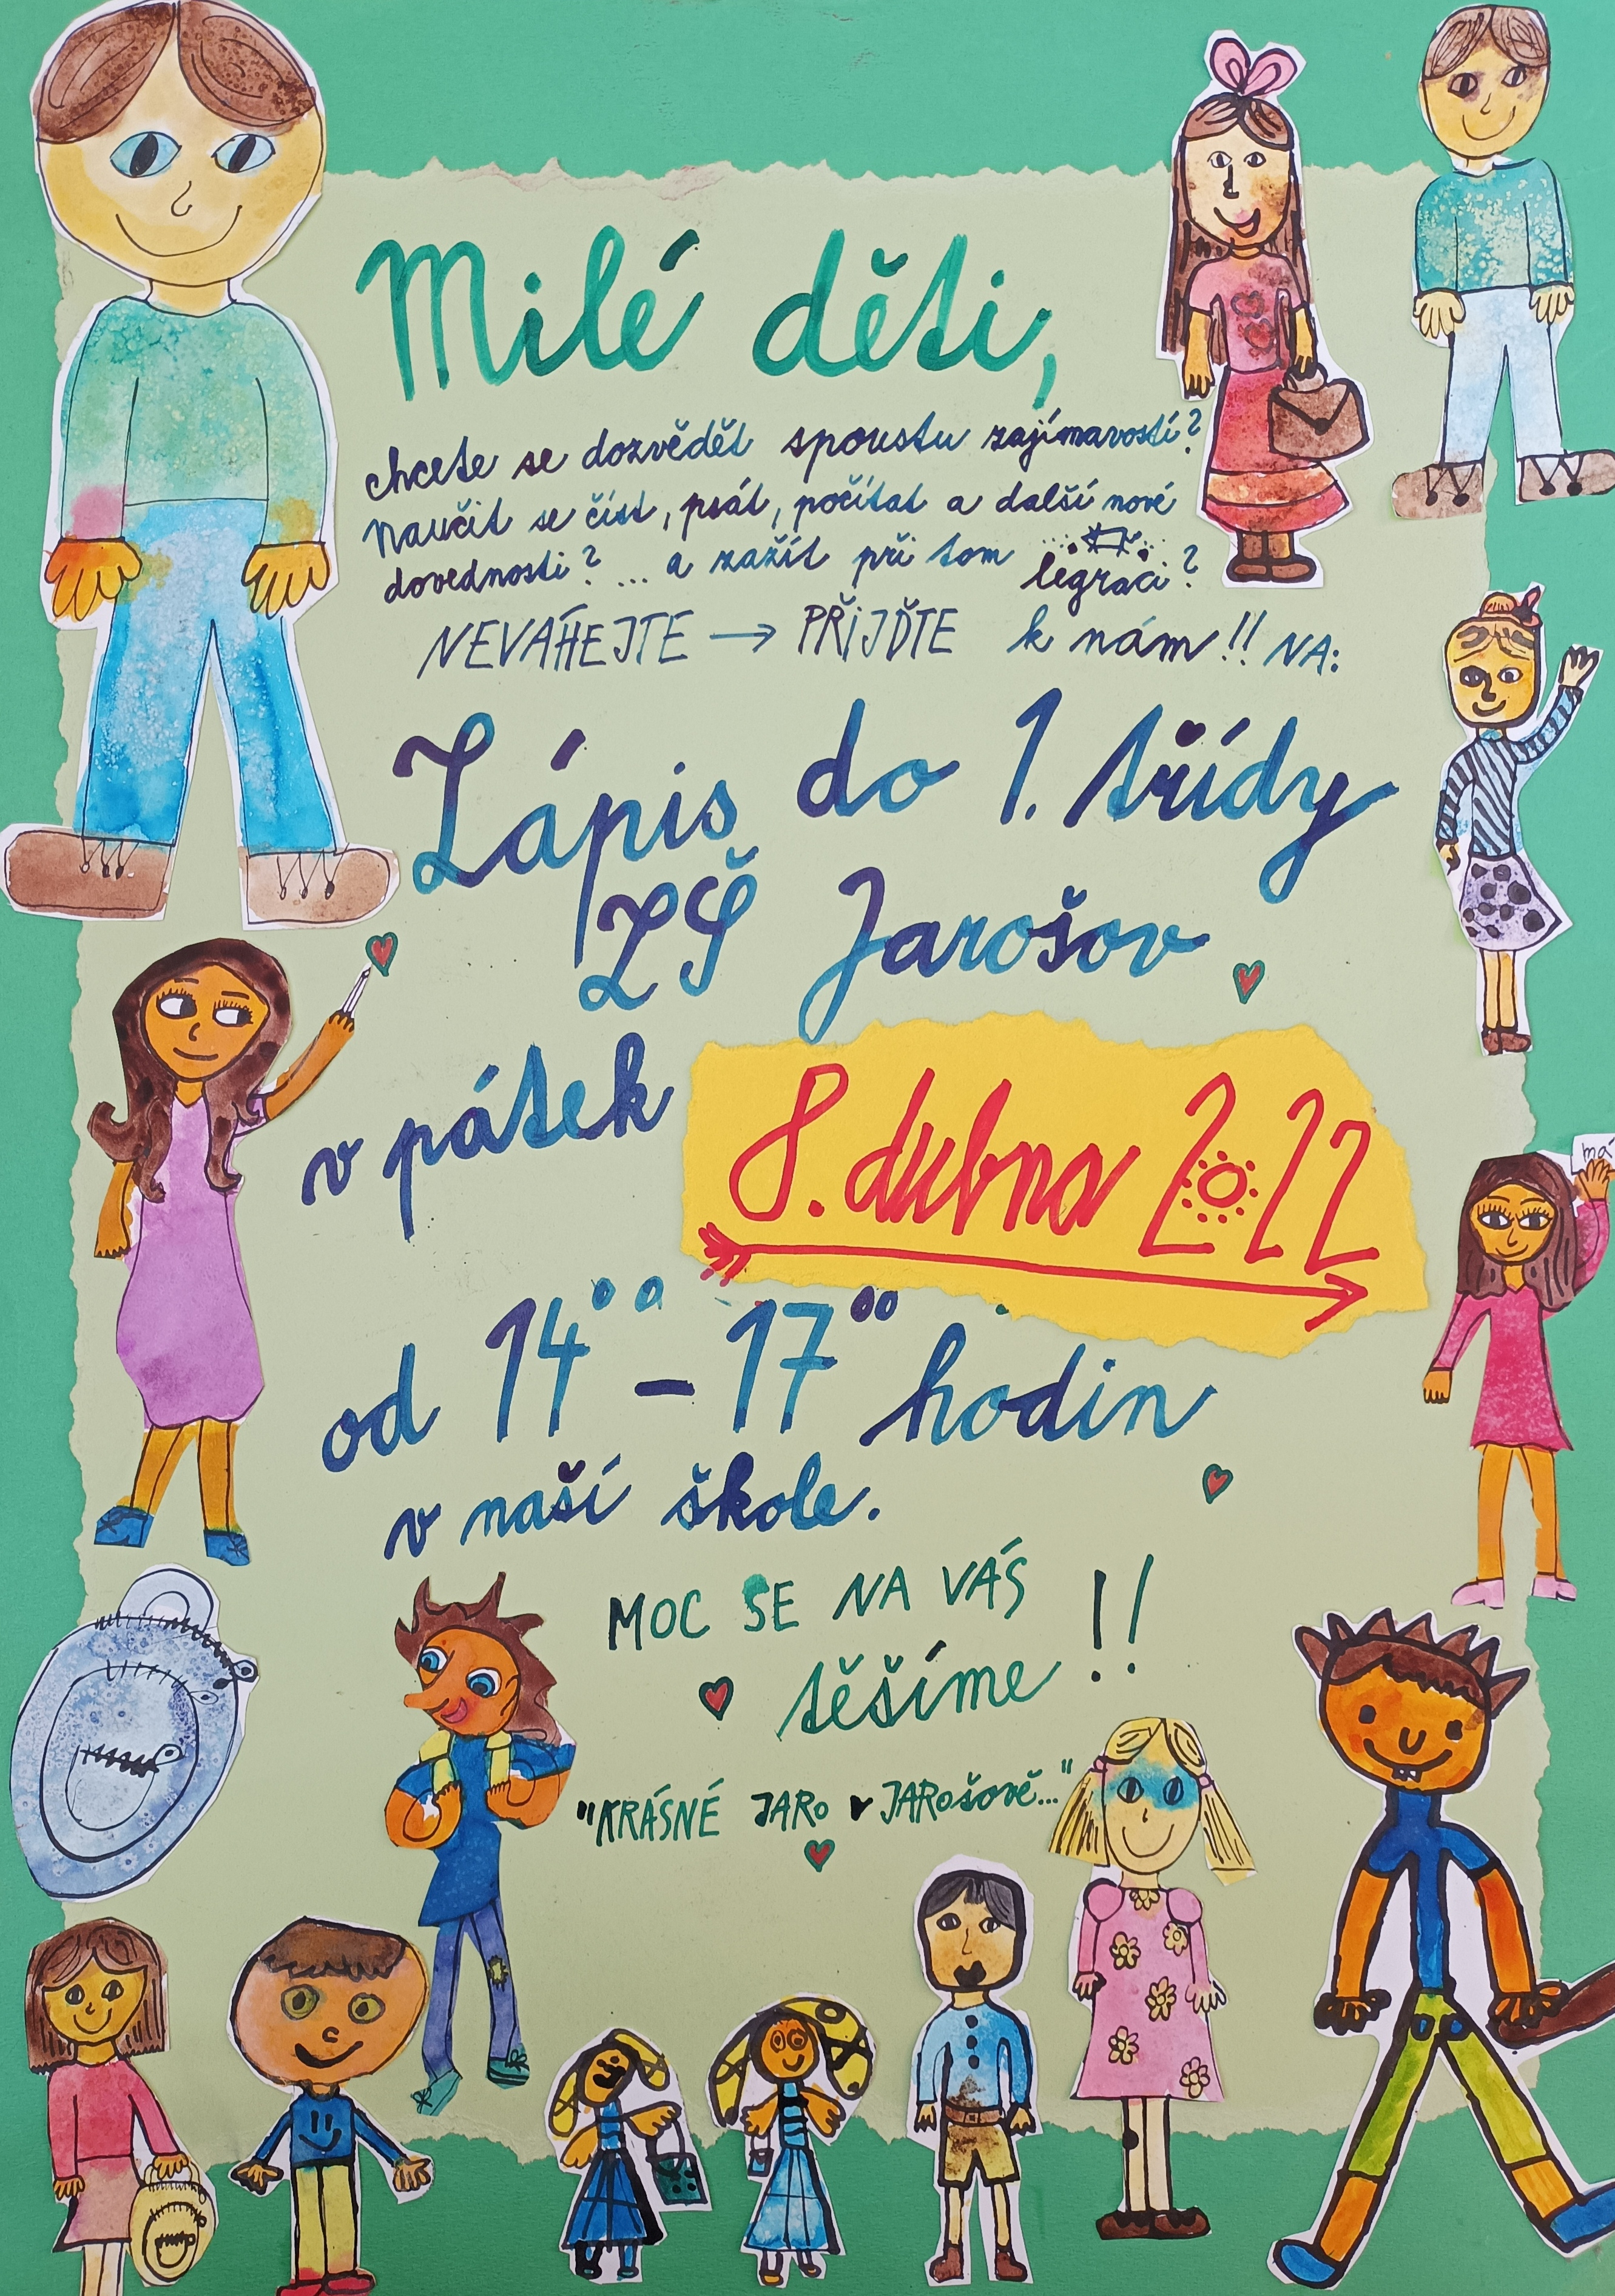 Milé děti,
chcete se dozvědět spoustu zajímavostí?
Naučit se číst, psát, počítat a další nové
dovednosti? ... a zažít při tom legraci?
NEVÁHEJTE → PŘiJĎTE k nám!! NA:
Zápis do 1. třídy
ZŠ Jarošov
v pátek 8. dubna 2022
od 14⁰⁰ - 17⁰⁰ hodin
v naší škole.
MOC SE NA VÁS
těšíme!!
"KRÁSNÉ JARo v JARošově..."
má